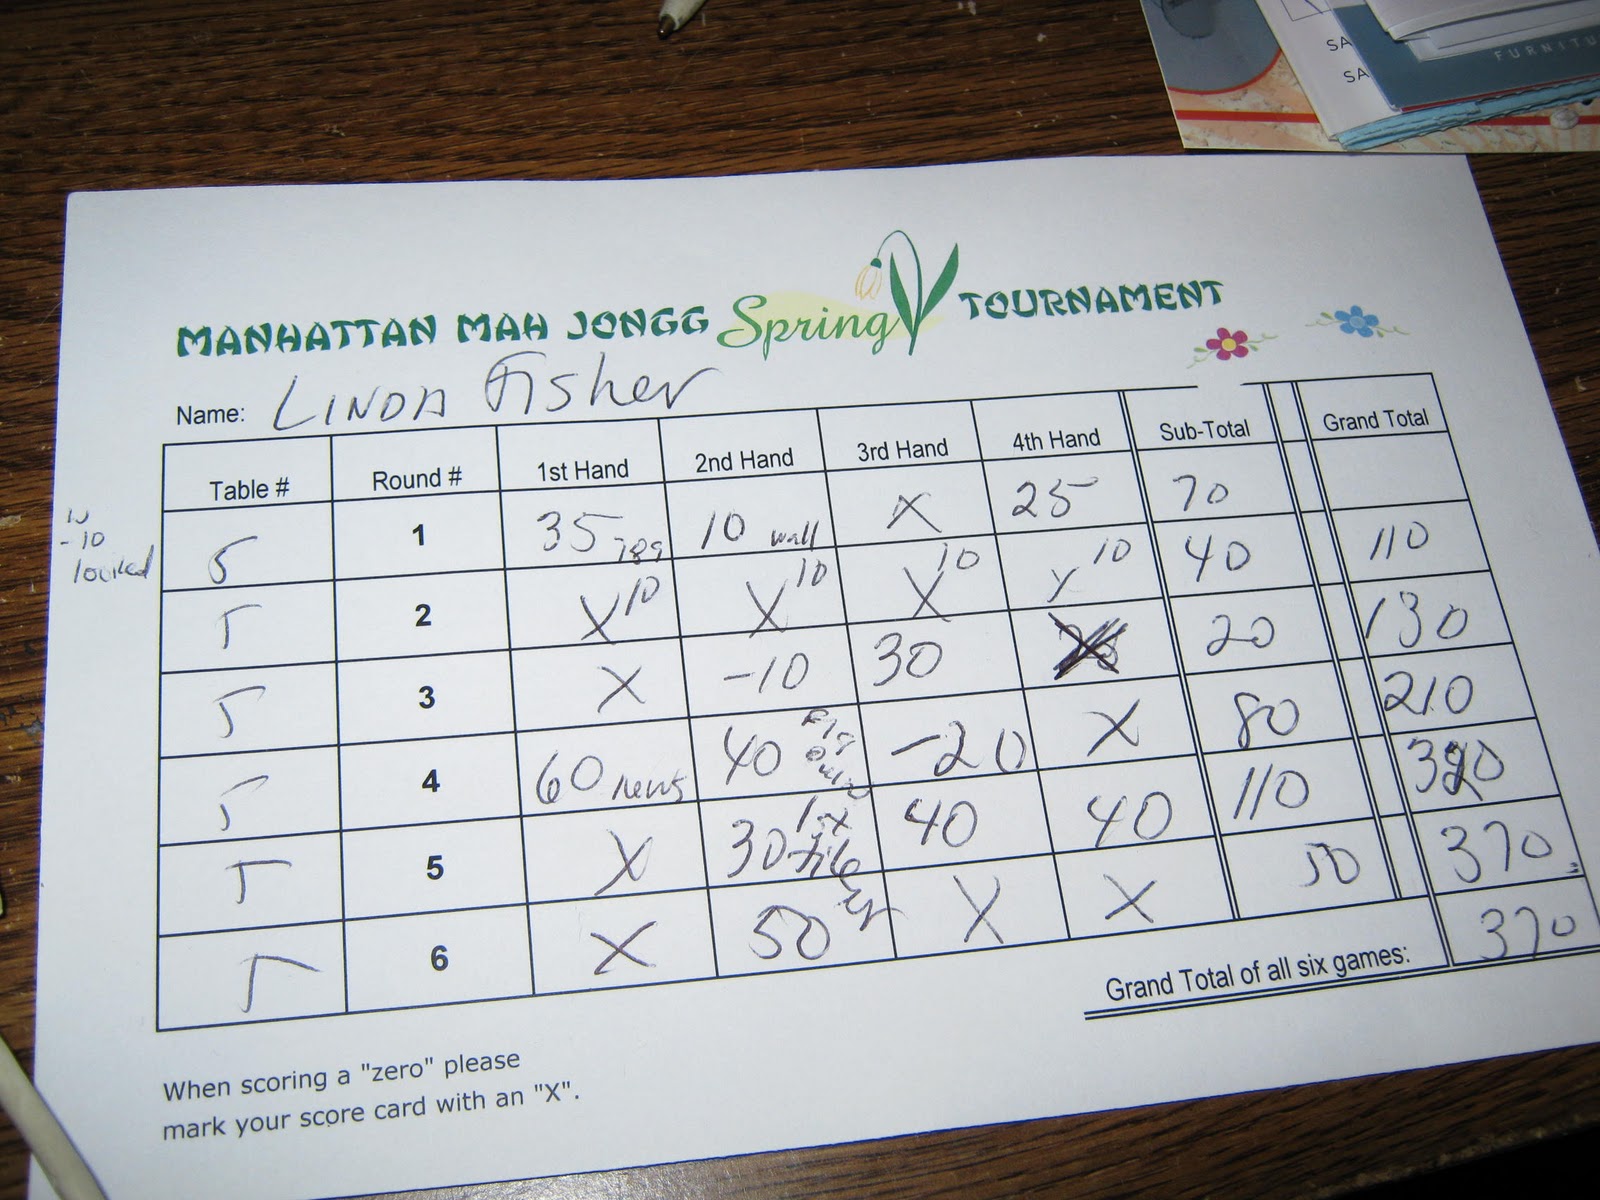 SA
SA
FURNITU
MANHATTAN MAH JONGG Spring TOURNAMENT
Name: LINDA Fisher
Table # Round # 1st Hand 2nd Hand 3rd Hand 4th Hand Sub-Total Grand Total
-10
5 1 35 789 10 wall X 25 70
5 2 X10 X10 X10 X10 40 110
5 3 X -10 30 X 20 130
5 4 60 news 40 -20 X 80 210
5 5 X 30 1st tile 40 40 110 320
5 6 X 50 X X 50 370
Grand Total of all six games: 370
When scoring a "zero" please
mark your score card with an "X".